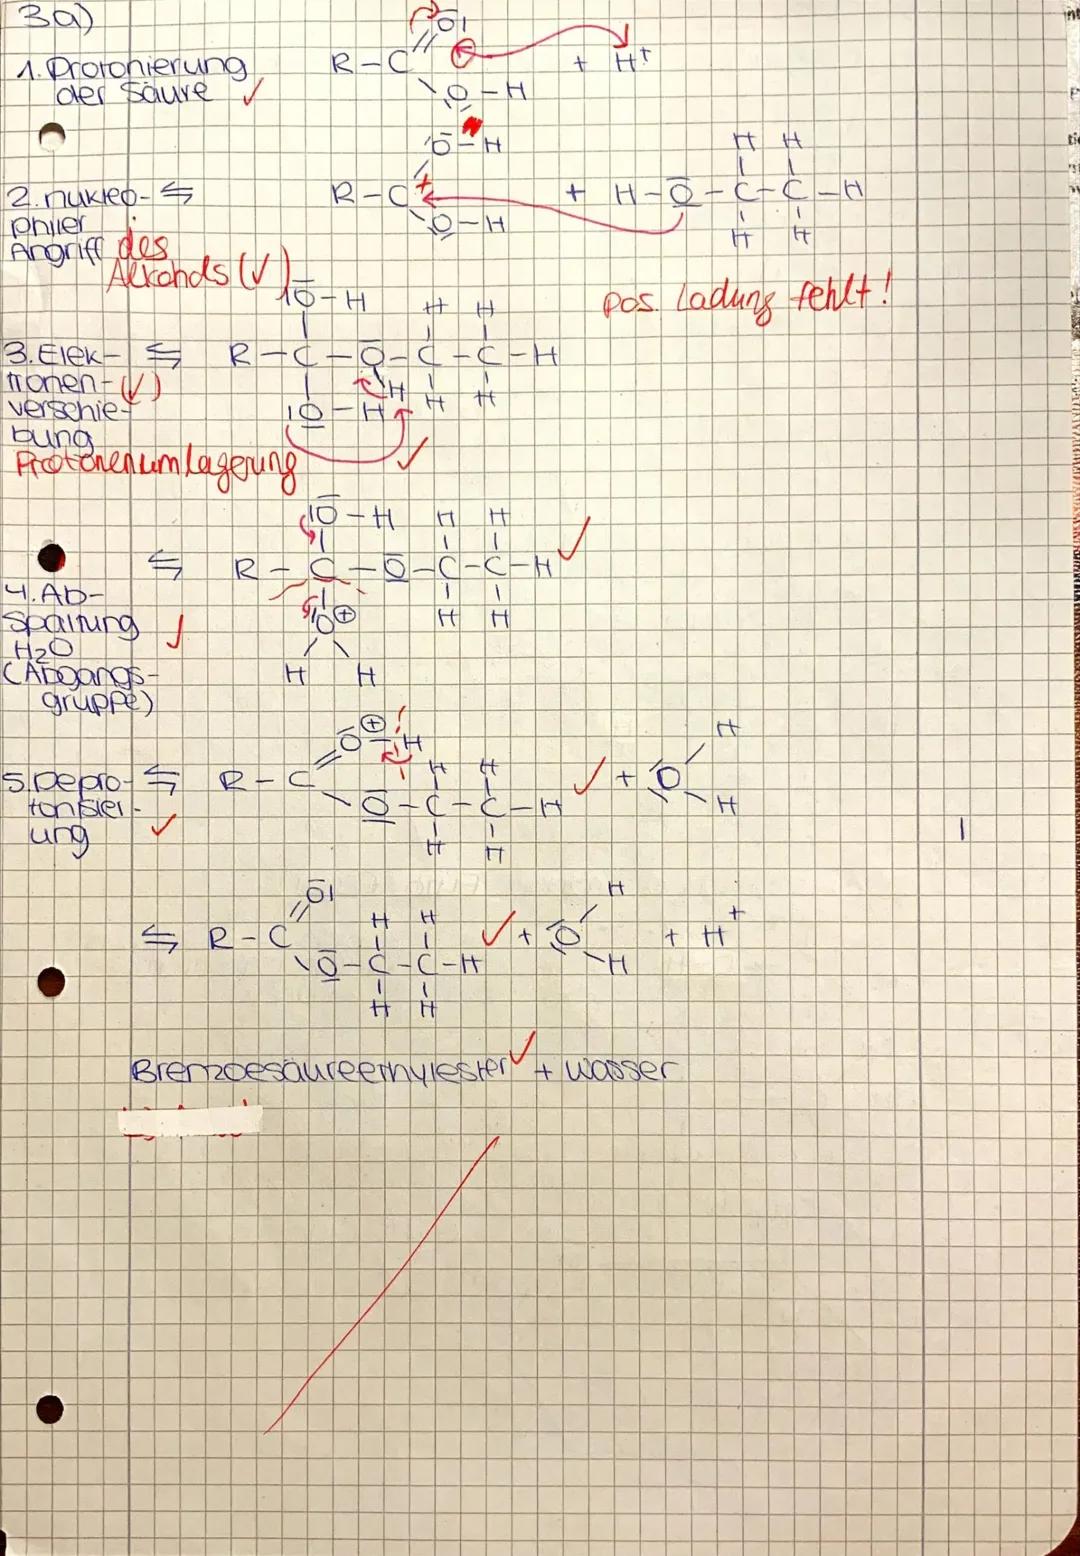 3a)
1. Protonierung
der Säure ✓
R-C
O
O-H
+ H+
2. nukleo- ⇋
philer
Angriff des
Alkohols (✓)
O-H
R-C+
O-H
+ H-O-C-C-H
H H
H H
pos. Ladung fehlt!
3. Elek- ⇋
tronen- (✓)
verschie-
bung
Protonenumlagerung
O-H H H
R-C-O-C-C-H
H H H
O-H
✓
O-H H H
⇋ R-C-O-C-C-H ✓
O⊕ H H
H H
4. Ab-
spaltung ✓
H2O
(Abgangs-
gruppe)
5. Depro- ⇋
tonisier-
ung ✓
O⊕-H
R-C
H H
O-C-C-H ✓
H H
+ O
H
H
O
⇋ R-C
H H
O-C-C-H ✓
H H
+ O
H
H
+ H+
Brenzoesäureethylester ✓ + Wasser